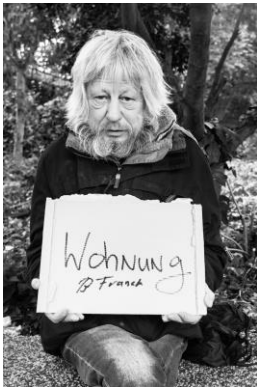 Wohnung
B Franck